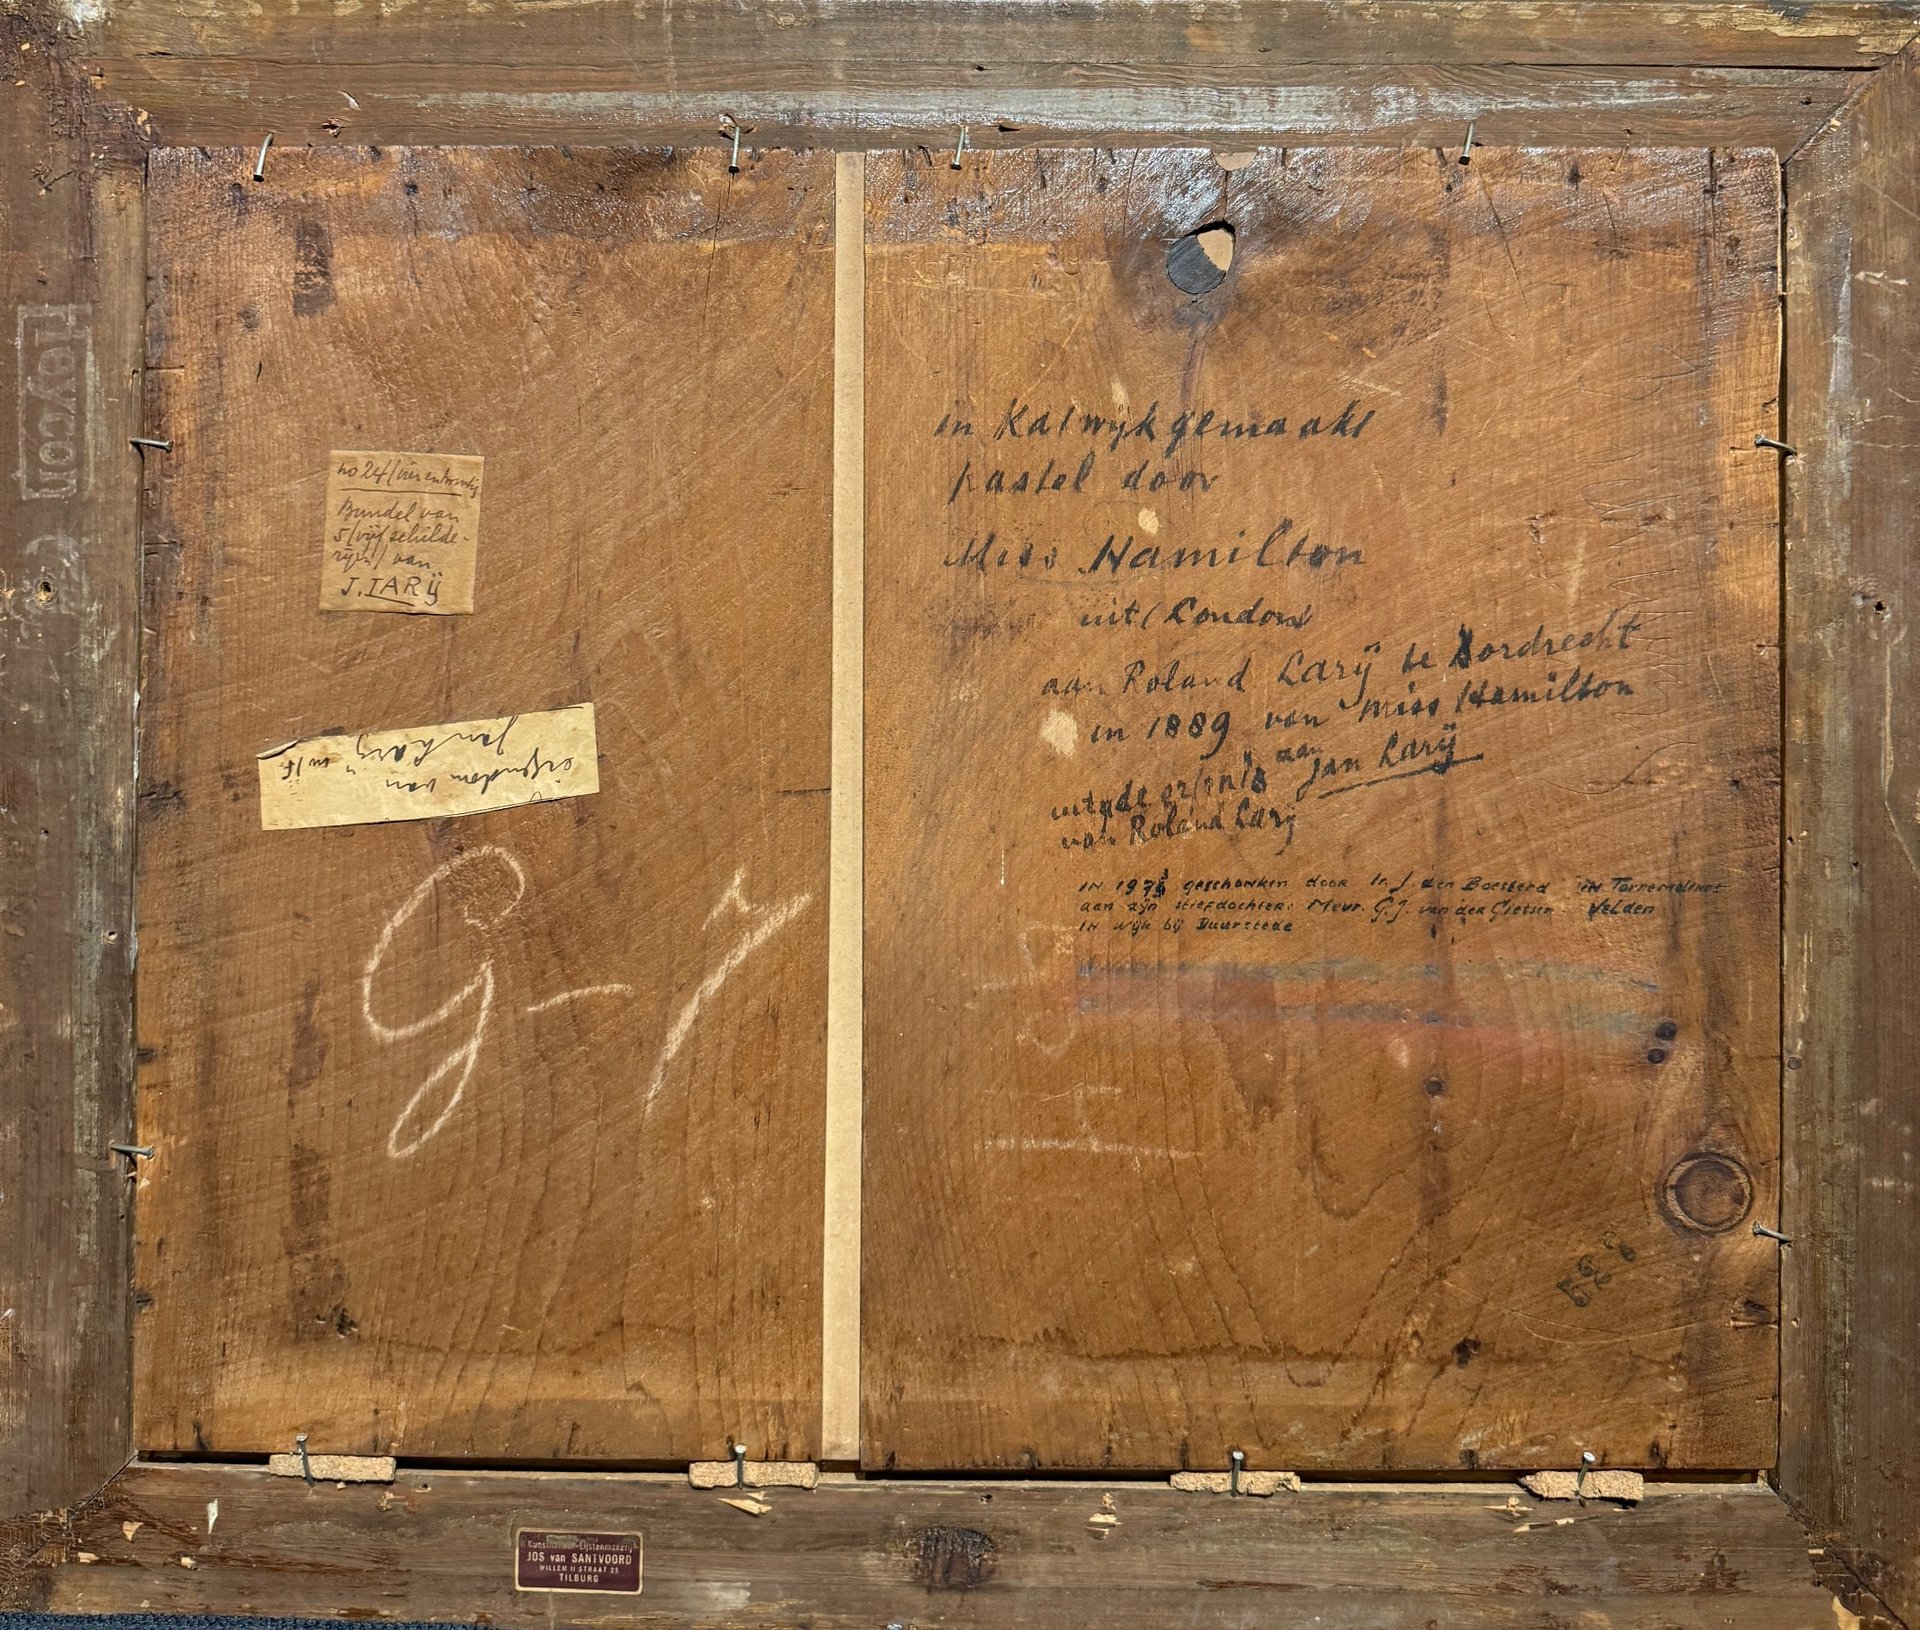 Heycon
no 24/vierentwintig
Bundel van
5/vijf schilde-
rijen/ van
J. LARIJ
eigendom van
Jan Larij
G - 7
in Katwijk gemaakt
pastel door
Miss Hamilton
uit London
aan Roland Larij te Dordrecht
in 1889 van Miss Hamilton
uit de erfenis aan Jan Larij
van Roland Larij
IN 197 geschonken door Ir. J. den Boesterd IN Torremolinos
aan zijn stiefdochter: Mevr. G.J. van der Giessen Velden
IN Wijk bij Duurstede
Kunsthandel-Lijstenmakerij
JOS van SANTVOORD
WILLEM II STRAAT 25
TILBURG